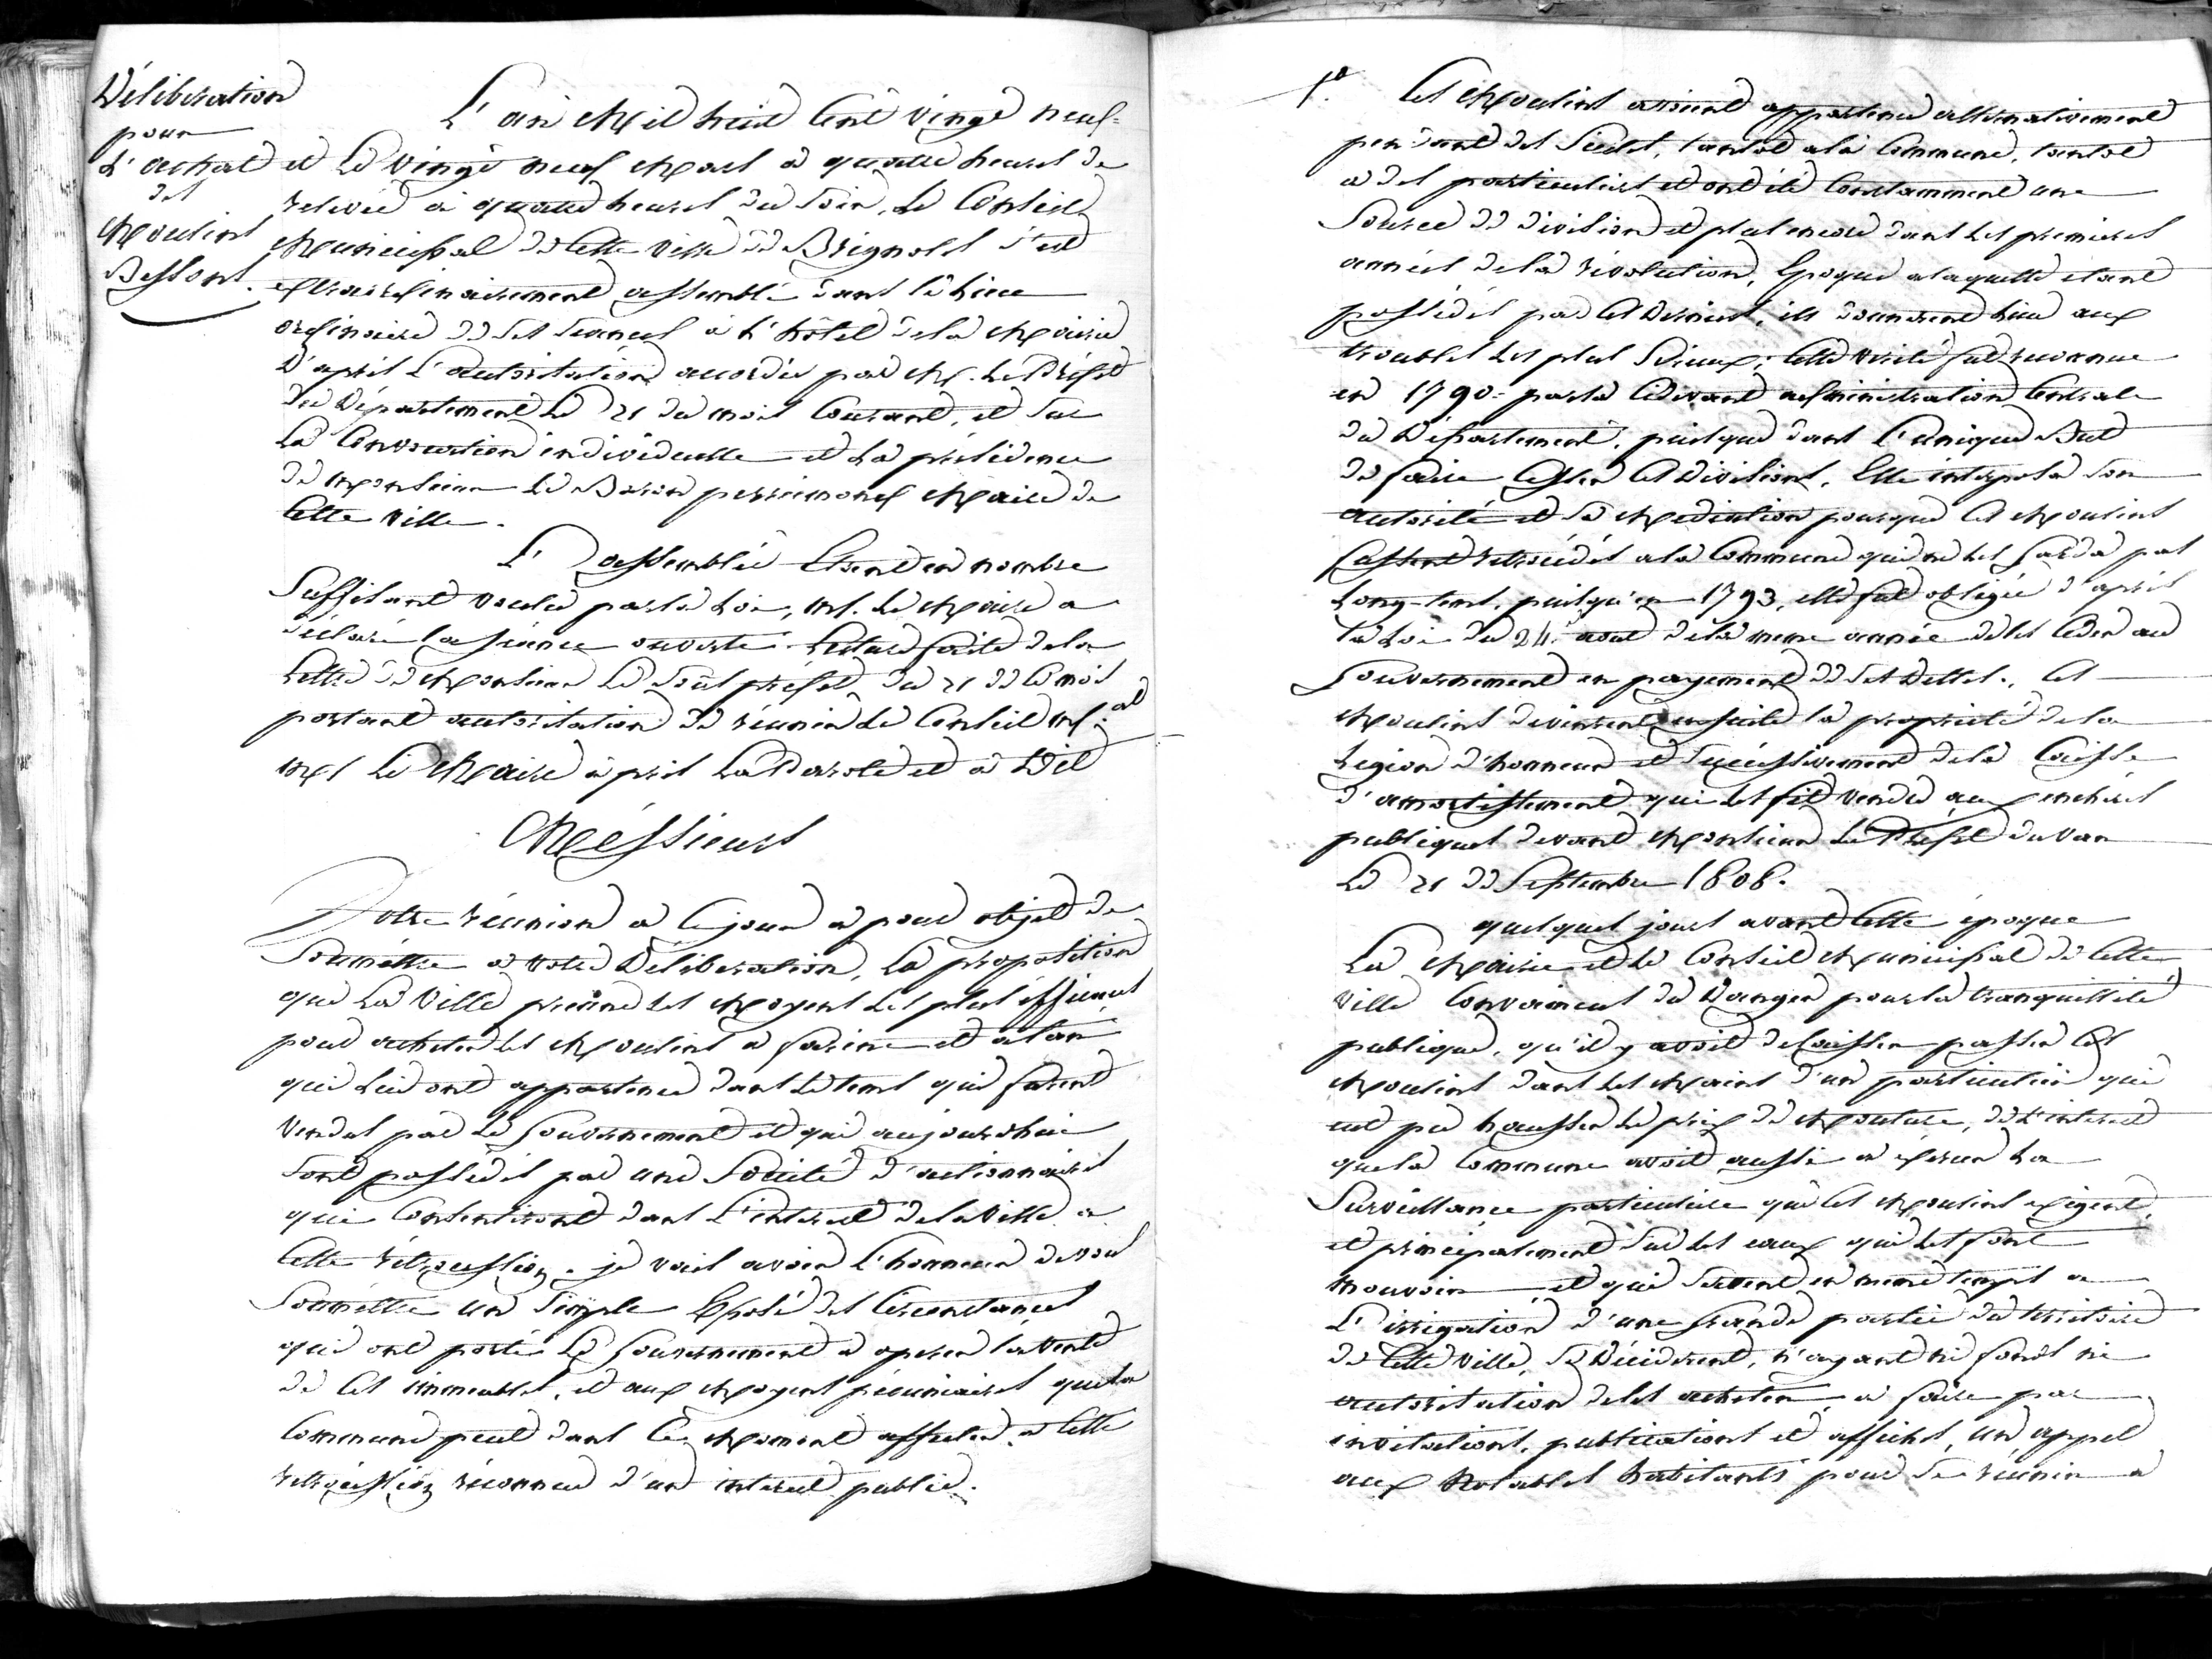 Déliberation
pour
L'achat
des
Moulins
Bessons.
L'an Mil huit Cent vingt neuf
et Le vingt neuf Mars à quatre heures de
relevée à quatre heures du soir, Le Conseil
Municipal de Cette ville de Brignoles s'est
extraordinairement assemblé dans le lieu
ordinaire de ses séances à L'hôtel de la Mairie
D'après L'autorisation accordée par M. Le Préfet
du Département Le 21 du mois Courant, et sur
La Convocation individuelle et La présidence
de Monsieur Le Baron perrimond Maire de
Cette ville.
L'assemblée Etant en nombre
Suffisant voulu par la Loi, Mr. Le Maire a
déclaré la séance ouverte. Lecture faite de la
Lettre de Monsieur Le Sous préfet du 21 de Ce mois
portant autorisation de réunir Le Conseil M.al
Mr Le Maire a pris La Parole et a Dit
Méssieurs
Votre réunion de Ce jour a pour objet de
Soumettre à votre Déliberation, La proposition
que La Ville prenne Les Moyens Les plus éfficaces
pour acheter Les Moulins à farine et à tan
qui Lui ont appartenu dans Le tems qui furent
vendus par Le Gouvernement et qui aujourdhui
sont possédés par une Société d'actionnaires
qui Consentiront dans L'interet de la Ville a
Cette rétrocession. je vais avoir L'honneur de vous
Soumettre un Simple Exposé des Circonstances
qui ont porté Le Gouvernement à operer la vente
de Ces immeubles, et aux Moyens pécuniaires que la
Commune peut dans Ce Moment affecter à Cette
retrocession réconnue d'un interet public.
1o. Ces Moulins avoient appartenu alternativement
pendant des Siècles, tantot à la Commune, tantot
à des particuliers et ont été Constamment une
Source de division et plus encore dans les premieres
années de la révolution, Epoque a laquelle etant
possédés par Ces Derniers, ils donnerent lieu aux
troubles les plus Serieux; Cette verité fut reconnue
en 1790. par la Cidevant administration Centrale
du Département, puisque dans L'unique But
de faire Cesser Ces Divisions, Elle interposa son
autorité et sa Mediation pourque Ces Moulins
fussent retrocédés a la Commune qui ne les garda pas
Long-tems, puisqu'en 1793, elle fut obligée d'après
La Loi du 24 aout de la meme année de les Ceder au
Gouvernement en payement de ses Dettes. Ces
Moulins devinrent ensuite la proprieté de la
Légion d'honneur et Successivement de la Caisse
d'amortissement qui les fit vendre aux encheres
publiques devant Monsieur Le Préfet du Var
Le 21 de Septembre 1808.
quelques jours avant Cette époque
La Mairie et Le Conseil Municipal de Cette
Ville Convaincus du Danger pour la tranquillité
publique, qu'il y avoit de laisser passer Ces
Moulins dans les Mains d'un particulier qui
eut pu hausser Le prix de Mouture, de L'interet
que la Commune avoit aussi à éxercer La
Surveillance particuliere que Ces Moulins exigent,
et principalement sur Les eaux qui Les font
mouvoir et qui Servent en meme temps à
L'irrigation d'une Grande partie du territoire
de Cette Ville, Se Déciderent, n'ayant ni fonds ni
autorisation de les acheter, à faire par
invitations, publications et affiches, un appel
aux Notables habitants pour se réunir à